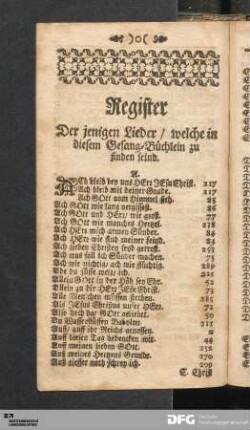 )o(
Register
Der jenigen Lieder / welche in
diesem Gesang-Büchlein zu
finden seind.
A.
ACh bleib bey uns HErr JEsu Christ. 117
Ach bleib mit deiner Gnade. 117
Ach GOtt vom Himmel sieh. 85
Ach GOtt wie lang vergissest. 86
Ach GOtt und HErr / wie groß. 77
Ach GOtt wie manches Hertzel. 178
Ach HErr mich armen Sünder. 84
Ach HErr wie sind meiner Feind. 84
Ach lieben Christen seyd getrost.
Ach was soll ich Sünder machen. 75
Ach wie nichtig / ach wie flüchtig. 289
Allein GOtt in der Höh sey Ehr. 52
Allein zu dir HErr JEsu Christ. 73
Alle Menschen müssen sterben. 285
Als JEsus Christus unser HErr. 72
Also hoch hat GOtt geliebt. 50
An Wasserflüssen Babylon 215
Auf diesen Tag bedencken wir. 48
Auff meinen lieben GOtt. 252
Aus meines Hertzens Grunde. 270
Aus tieffer noth schrey ich. 209
C. Christ
DFG Deutsche
Forschungsgemeinschaft